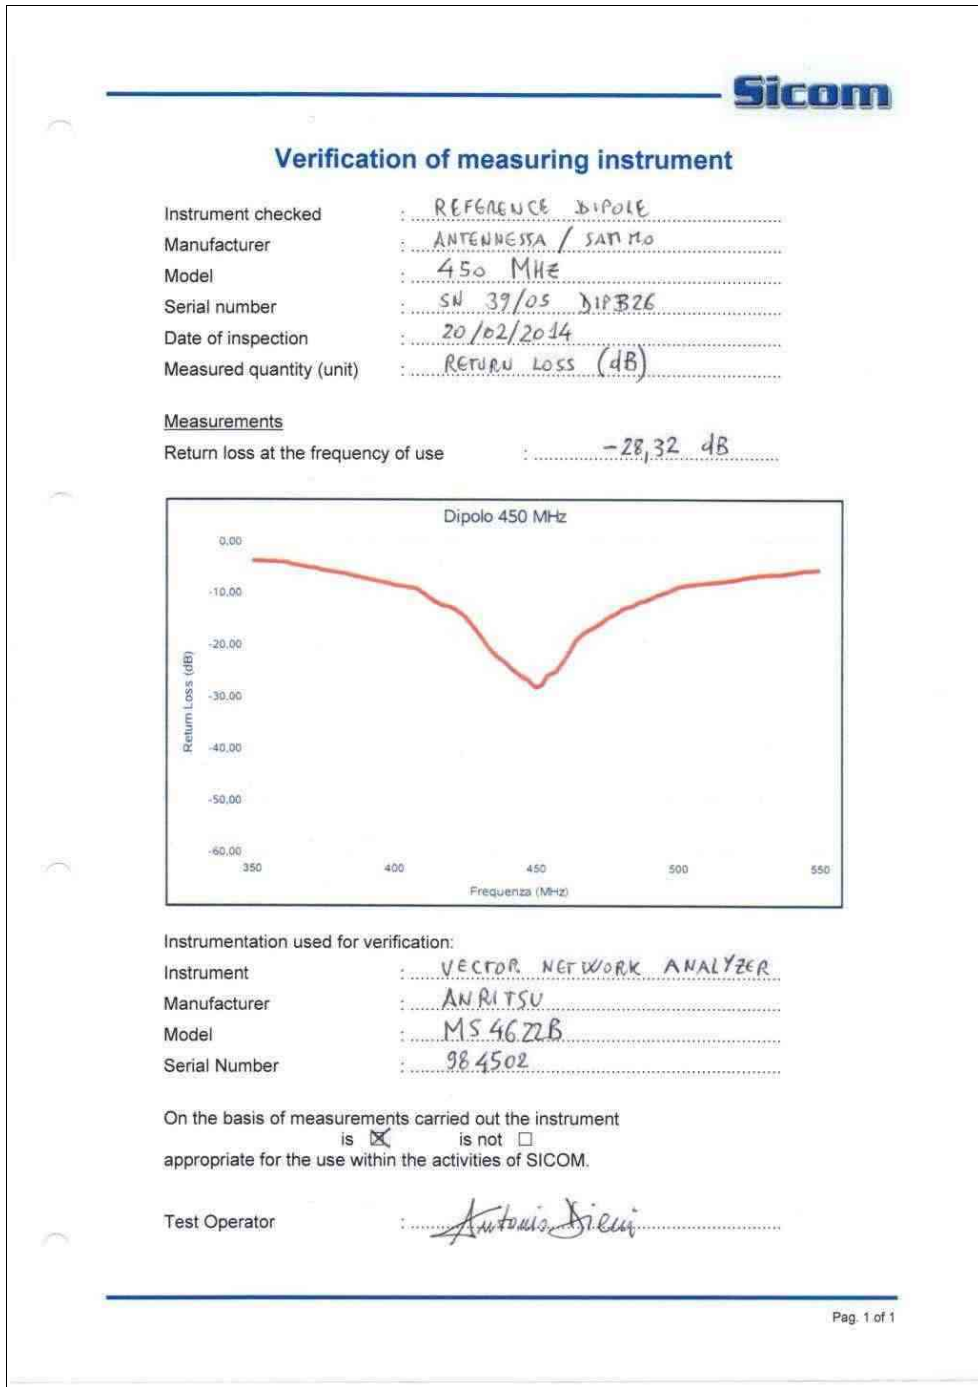 Sicom
Verification of measuring instrument
Instrument checked : REFERENCE DIPOLE
Manufacturer : ANTENNESSA / SATIMO
Model : 450 MHz
Serial number : SN 39/05 DIPB26
Date of inspection : 20/02/2014
Measured quantity (unit) : RETURN LOSS (dB)
Measurements
Return loss at the frequency of use : -28,32 dB
Dipolo 450 MHz
0,00
-10,00
-20,00
-30,00
-40,00
-50,00
-60,00
Return Loss (dB)
350 400 450 500 550
Frequenza (MHz)
Instrumentation used for verification:
Instrument : VECTOR NETWORK ANALYZER
Manufacturer : ANRITSU
Model : MS4622B
Serial Number : 984502
On the basis of measurements carried out the instrument
is ☒ is not ☐
appropriate for the use within the activities of SICOM.
Test Operator : Antonio
Pag. 1 of 1